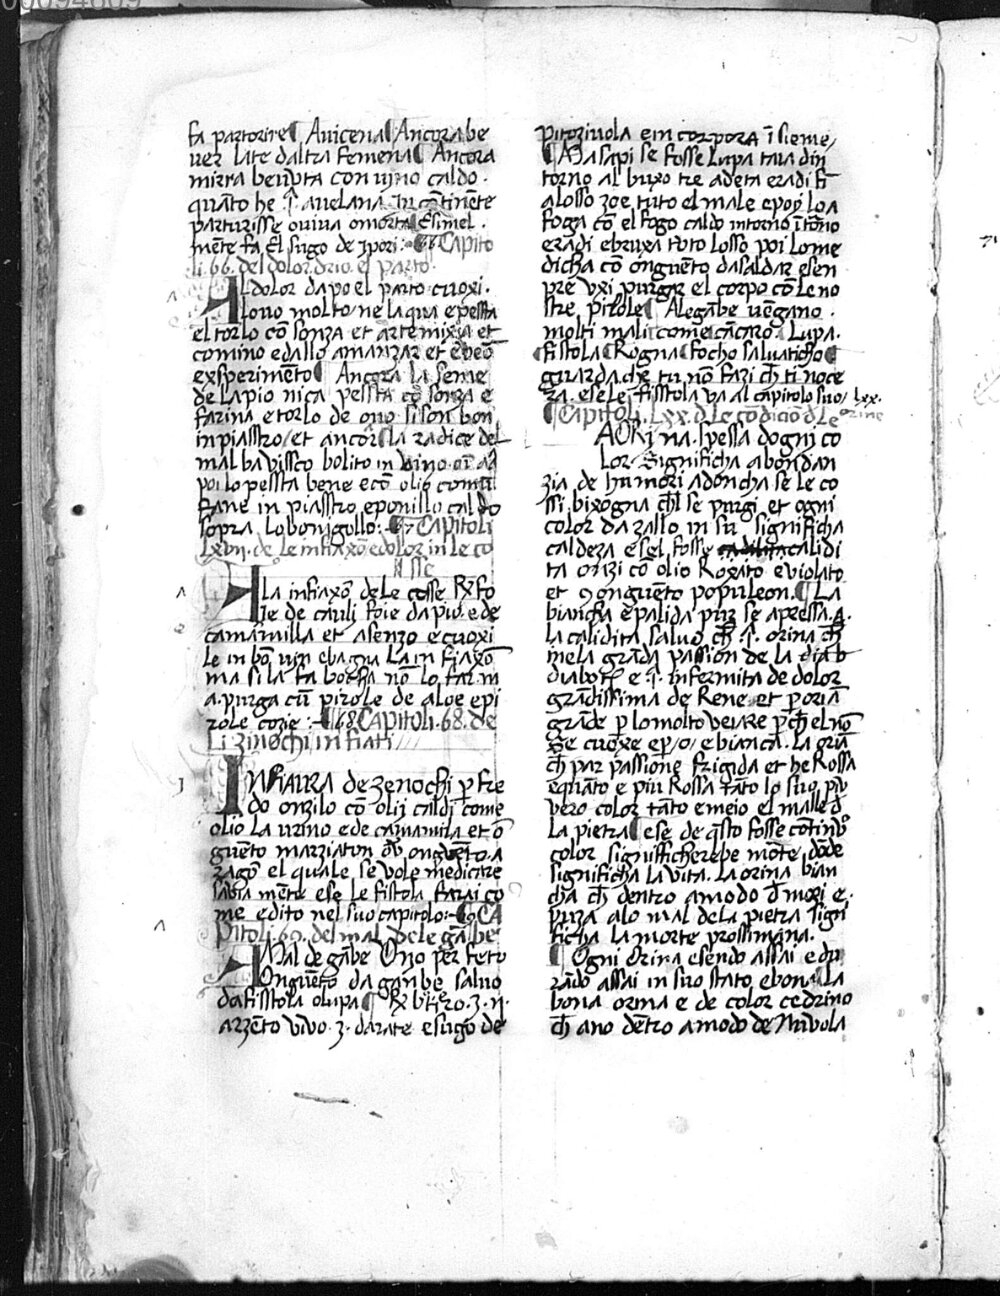 fa partorire¶ Avicena¶ Ancora be
ver late daltra femena¶ Ancora
mirra bevuta con vino caldo.
quāto he .j. avelana. In cōtinēte
parturisse o viva o morta¶ E simel.
mēte fa El sugo de
Capito
li.66. del dolor drio el parto.
Al dolor da po el parto cuoxi.
lovo molto/ne laqua e pessta
el torlo cō sonza et artemixia et
comino e dallo amanzar et
exsperimēto¶ Ancora la seme
de lapio niça pessta cō sonza e
farina e torlo de ovo si son bon
inpiasstro/et ancōr¶la radice del
malbavissco bolito in vino
poi lo pessta bene ecō olio comū
fane in piasstro e ponillo caldo
sopra lo bonigollo:. ¶67Capitoli
Lxvij. de le infiaxō e dolor in le co
sse
Ala infiaxō de le cosse. Rx fo
ie de cauli foie da piv. e de
camamilla et asenzo e cuoxi
le in bō vin e bagna La infiaxō
ma si la fa bocha nō lo far. m
a. purga cū pirole de aloe e pi
role cozie :-¶68Capitoli.68. de
Li zinochi infiati
Infiaura de zenochi p fre
do onzilo cō olij caldi come
olio laurino e de camamila et ō
guēto marziaton ōv onguēto. a
ragō el quale se vole medicare
savia mēte e se le fistola farai co
me e dito nel suo capitolo:-¶69Ca
Pitoli.69. del mal de le gābe
Al mal de gābe Ovo per feto
Onguēto da gambe salvo
da fisstola o lupa¶ Rx
arzēto vivo .3. darate e sugo de
pitorivola e in corpora īsieme/
¶Ma sapi se fosse Lupa taia din
torno al buxo
alosso zoe tuto el male e poy lo a
foga cō el fogo caldo intorno ītōno
e radi e bruxa tuto losso poi lo me
dicha cō onguēto da saldar e sen
pre vxi purgar el corpo cō le no
stre pirole¶ Ale gābe vēgano.
molti mali come cācaro¶ Lupa.
¶fistola¶ Rogna¶focho salvaticho¶
guarda che tu nō fazi ch ti noce
ra. e se le fisstola va al capitolo suo/
¶Capitoli. Lxx. d Le cōdiciō d Le orine
La Orina. spessa dogni co
lor. Significha abondan
zia de humori adoncha se le co
ssi bixogna chl se purgi et ogni
color da zallo in su significha
caldeza e sel fosse calidi
ta onzi cō olio Roxato e violato
et 9onguēto populeon.¶ La
biancha e palida pur se apressa. a.
la calidita salvo ch .j. orina ch
inela grāda passion de la diab
diabot e .j. infermita de dolor
grādissima de Rene. et
grāde p lo molto veiare pch el nō
se cuoxe ep/o/ e bianca. La
ch par passione frigida et he Rossa
e quāto e piu Rossa tāto lo suo piu
vero color tāto e meio el malle d
la pietra¶e se de qsto fosse cōtinuo
color signifficherebe morte dōde
significha la vita. La orina bian
cha ch dentro a modo d mori e.
pura alo mal de la pietra signi
ficha la morte prossimana.
¶ Ogni Orina esendo assai e du
rādo assai in suo stato e bona¶La
bona orina e de color cedrino
ch ano dētro a modo de Nivola